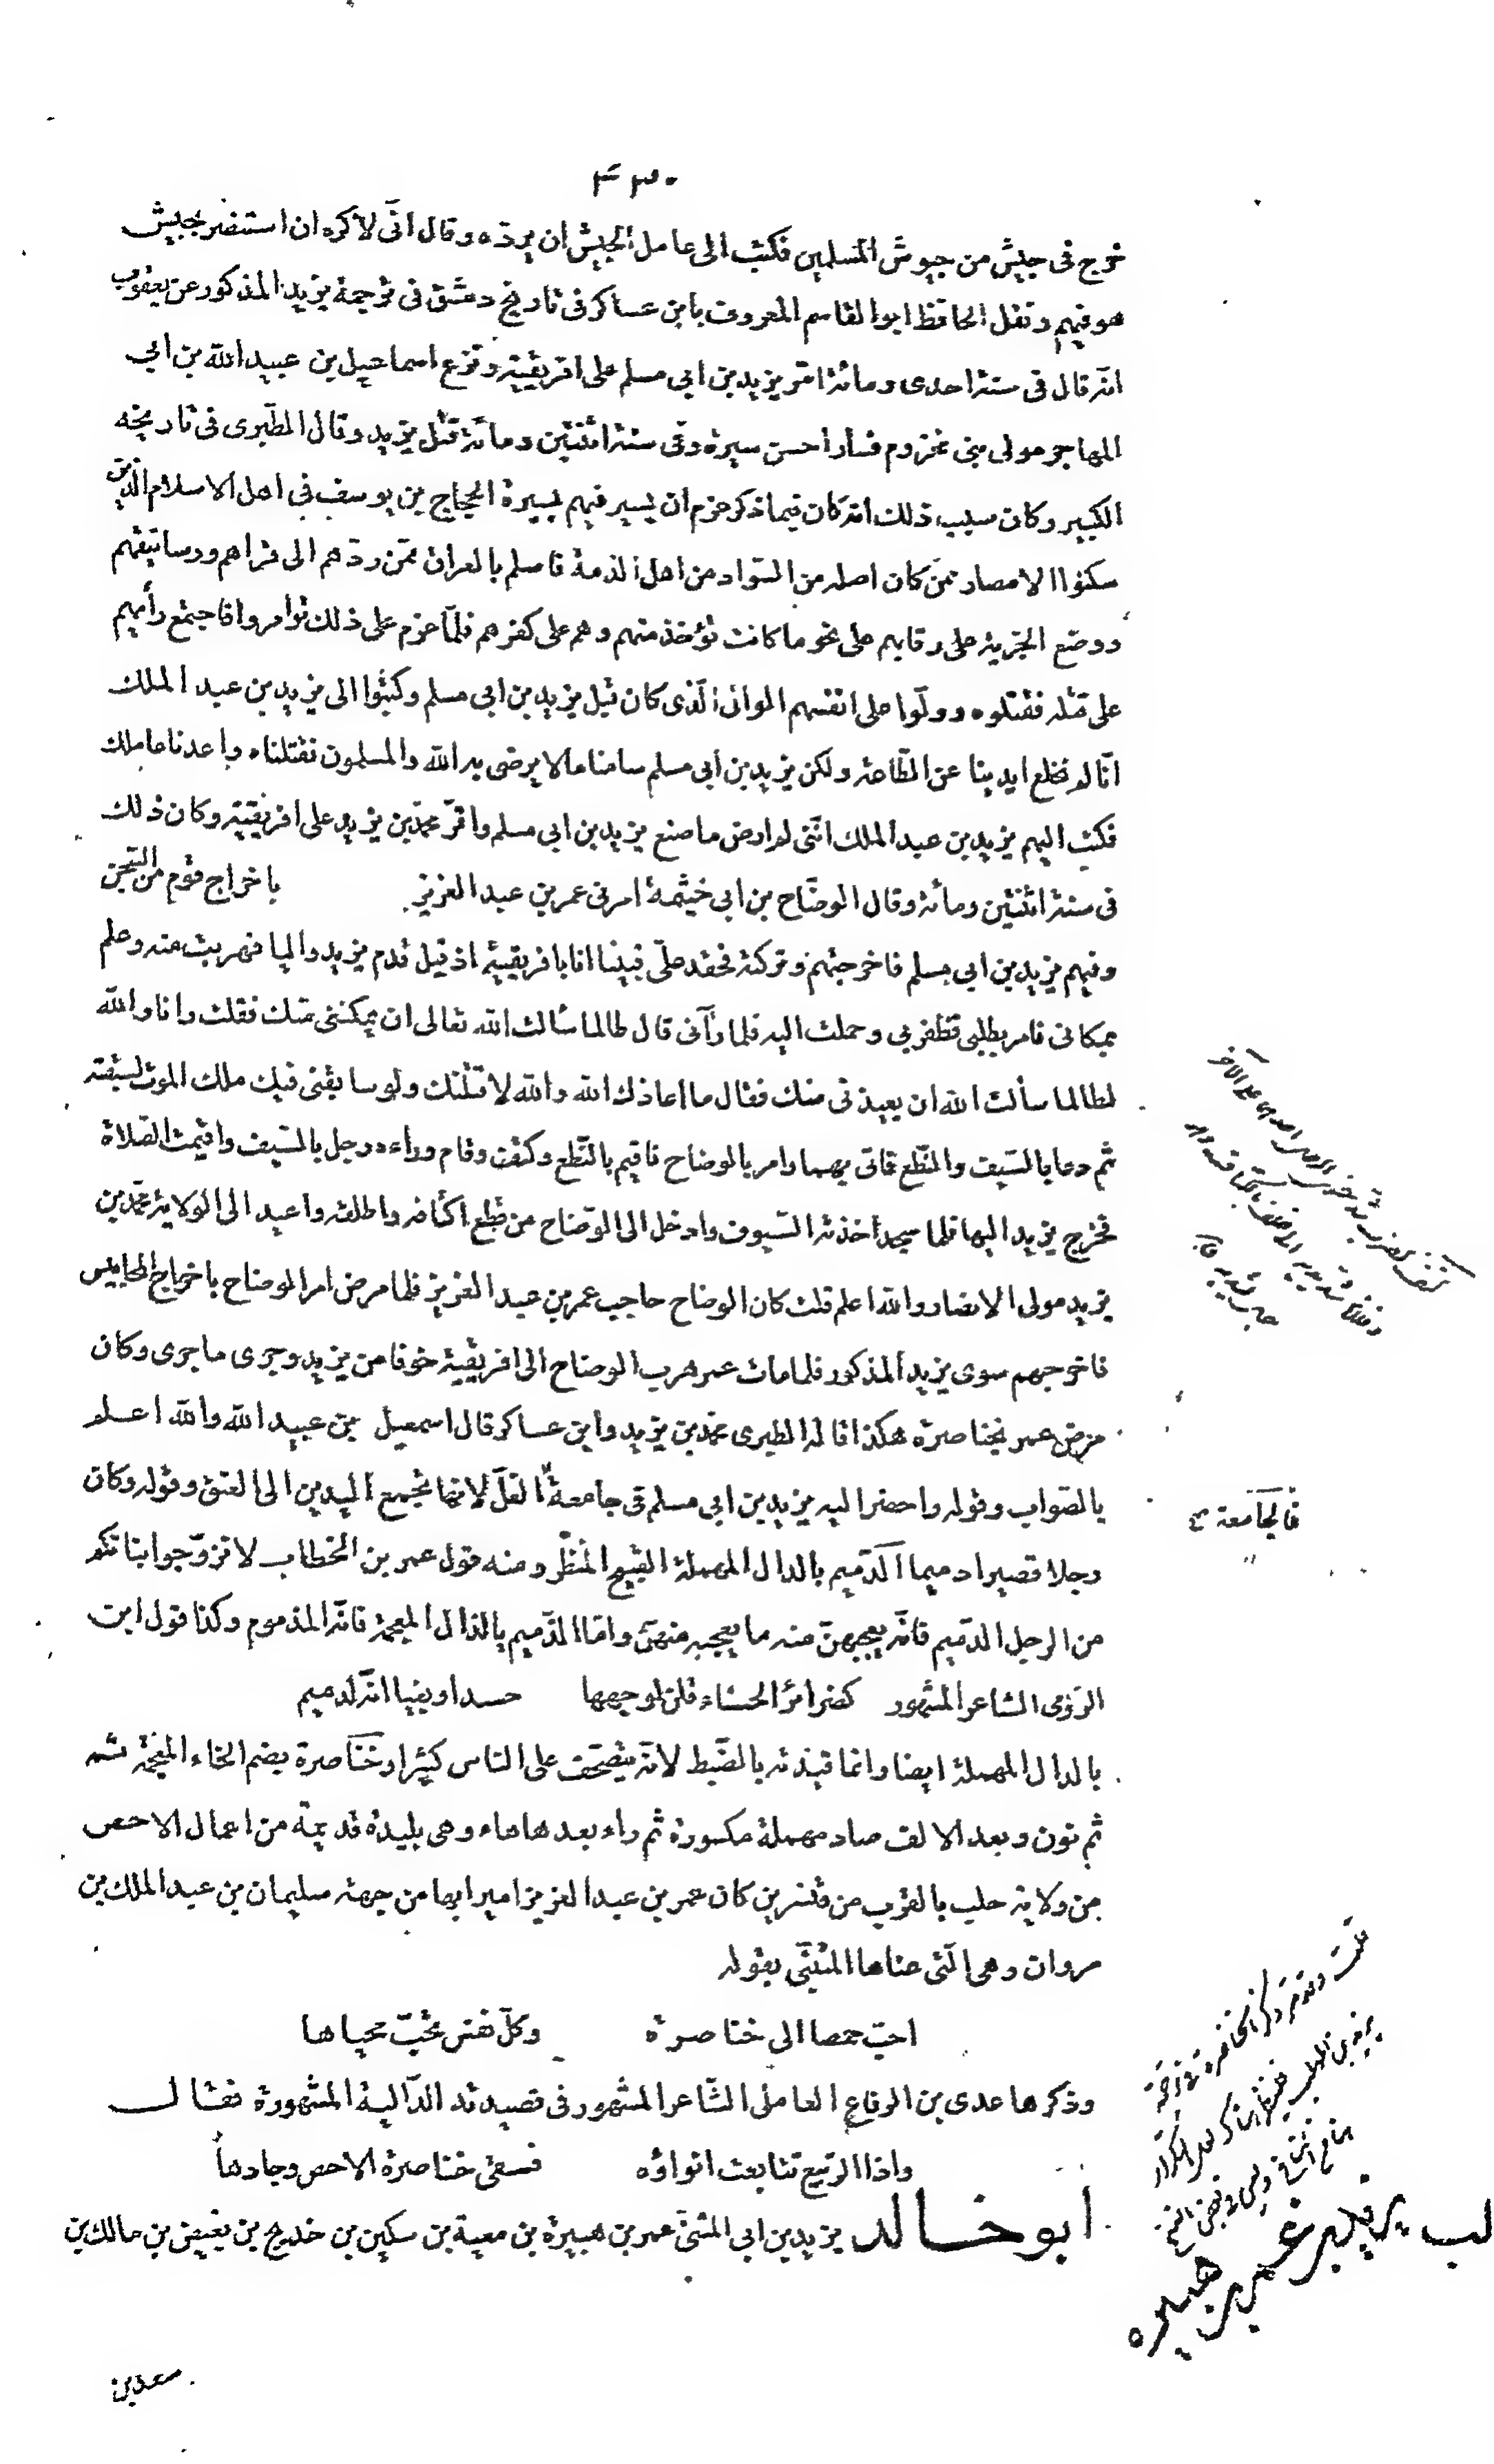 ٤٣٠
خرج فى جيش من جيوش المسلمين فكتب الى عامل الجيش ان يرده وقال انى لاكره ان استنصر بجيش
هو فيهم ونقل الحافظ ابو القاسم المعروف بابن عساكر فى تاريخ دمشق فى ترجمة يزيد المذكور عن يعقوب
انه قال فى سنة احدى ومائة امر يزيد بن ابى مسلم على افريقية ونزع اسماعيل بن عبيد الله بن ابى
المهاجر مولى بنى مخزوم فسار احسن سيرة وفى سنة اثنتين ومائة قتل يزيد وقال الطبرى فى تاريخه
الكبير وكان سبب ذلك انه كان فيما ذكر عزم ان يسير فيهم بسيرة الحجاج بن يوسف فى اهل الاسلام الذين
سكنوا الامصار ممن كان اصله من السواد من اهل الذمة فاسلم بالعراق ممن ردهم الى قراهم ورساتيقهم
ووضع الجزية على رقابهم على نحو ما كانت تؤخذ منهم وهم على كفرهم فلما عزم على ذلك توامروا فاجتمع رأيهم
على قتله فقتلوه وولوا على انفسهم الوالى الذى كان قبل يزيد بن ابى مسلم وكتبوا الى يزيد بن عبد الملك
انا لم نخلع ايدينا عن الطاعة ولكن يزيد بن ابى مسلم سامنا ما لا يرضى به الله والمسلمون فقتلناه واعدنا عاملك
فكتب اليهم يزيد بن عبد الملك اننى لم ارض ما صنع يزيد بن ابى مسلم واقر محمد بن يزيد على افريقية وكان ذلك
فى سنة اثنتين ومائة وقال الوضاح بن ابى خيثمة امرنى عمر بن عبد العزيز باخراج قوم من السجن
وفيهم يزيد بن ابى مسلم فاخرجتهم وتركته فحقد على فبينا انا بافريقية اذ قيل قدم يزيد واليا فهربت منه وعلم
بمكانى فامر بطلبى فظفر بى وحملت اليه فلما رآنى قال طالما سألت الله تعالى ان يمكننى منك فقلت وانا والله
لطالما سألت الله ان يعيذنى منك فقال ما اعاذك الله والله لاقتلنك ولو سابقنى فيك ملك الموت لسبقته
ثم دعا بالسيف والنطع فاتى بهما وامر بالوضاح فاقيم بالنطع وكتف وقام وراءه رجل بالسيف واقيمت الصلاة
فخرج يزيد اليها فلما سجد اخذته السيوف وادخل الى الوضاح من قطع اكتافه واطلقه واعيد الى الولاية محمد بن
يزيد مولى الانصار والله اعلم قلت كان الوضاح حاجب عمر بن عبد العزيز فلما مرض امر الوضاح باخراج المحابيس
فاخرجهم سوى يزيد المذكور فلما مات عمر هرب الوضاح الى افريقية خوفا من يزيد وجرى ما جرى وكان
مرض عمر بخناصرة هكذا قاله الطبرى محمد بن يزيد وابن عساكر قال اسمعيل بن عبيد الله والله اعلم
بالصواب وقوله واحضر اليه يزيد بن ابى مسلم فى جامعة الغل لانها تجمع اليدين الى العنق وقوله وكان
فالجامعة
رجلا قصيرا دميما الدميم بالدال المهملة القبيح المنظر ومنه قول عمر بن الخطاب لا تزوجوا بناتكم
من الرجل الدميم فانه يعجبهن منه ما يعجبه منهن واما الذميم بالذال المعجمة فانه المذموم وكذا قول ابن
الرومى الشاعر المشهور كضرائر الحسناء قلن لوجهها حسدا وبغيا انه لدميم
بالدال المهملة ايضا وانما قيدته بالضبط لانه يتصحف على الناس كثيرا وخناصرة بضم الخاء المعجمة
ثم نون وبعد الالف صاد مهملة مكسورة ثم راء بعدها هاء وهى بليدة قديمة من اعمال الاحص
من ولاية حلب بالقرب من قنسرين كان عمر بن عبد العزيز اميرا بها من جهة سليمان بن عبد الملك بن
مروان وهى التى عناها المتنبى بقوله
احب حمصا الى خناصرة وكل نفس تحب محياها
وذكرها عدى بن الرقاع العاملى الشاعر المشهور فى قصيدته الدالية المشهورة فقال
واذا الربيع تتابعت انواؤه فسقى خناصرة الاحص وجادها
ابو خالد يزيد بن ابى المثنى عمر بن هبيرة بن معية بن سكين بن خديج بن بغيض بن مالك بن
عمر بن هبيره
سعد بن